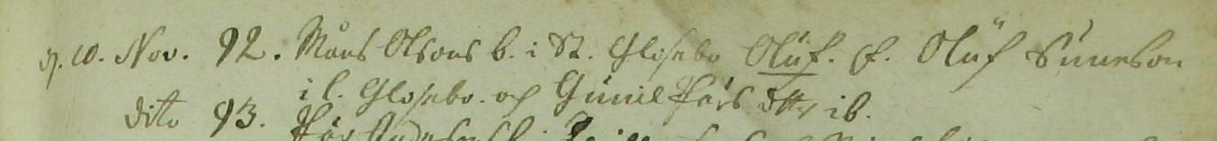 d. 10. Nov. 92. Måns Olsons b. i St. Glosebo Oluf. f. Oluf Suneson
i l. Glosebo. och Gunil Pärs dttr ib.
dito 93.